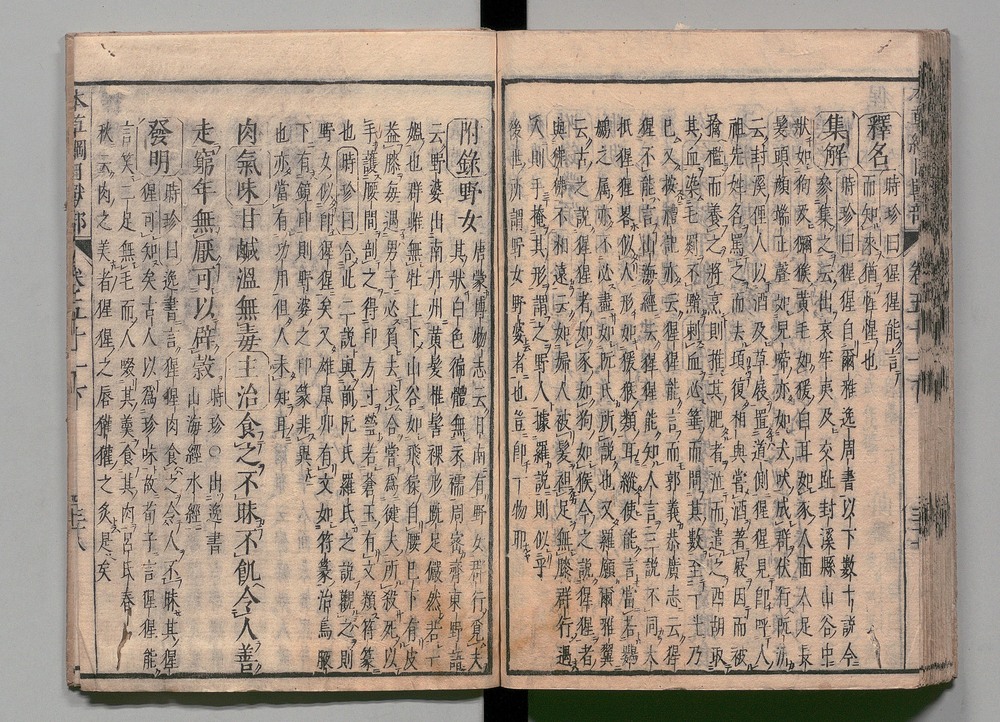 釋名 時珍曰猩猩能言
而知來猶惺惺也
集解 時珍曰猩猩自爾雅逸周書以下數十說今
參集之云出哀牢夷及交趾封溪縣山谷中
狀如狗及獼猴黃毛如猿白耳如豕人面人足長
髮頭顏端正聲如兒啼亦如犬吠成群伏行阮汧
云封溪俚人以酒及草屐置道側猩猩見即呼人
祖先姓名罵之而去頃復相與嘗酒著屐因而被
擒檻而養之將烹則推其肥者泣而遣之西胡取
其血染毛罽不黯刺血必箠而問其數至一斗乃
已又按禮記亦云猩猩能言而郭義恭廣志云猩
猩不能言山海經云猩猩能知人言三說不同大
抵猩猩畧似人形如猿猴類耳縱使能言當若鸚
䳇之屬亦不必盡如阮氏所說也又羅願爾雅翼
云古之說猩猩者如豕如狗如猴今之說猩猩者
與狒狒不相遠云如婦人被髮袒足無膝群行遇
人則手掩其形謂之野人據羅說則似乎
後世所謂野女野婆者也豈即一物耶
附錄野女 唐蒙博物志云日南有野女群行覓夫
其狀白色徧體無衣襦周密齊東野語
云野婆出南丹州黃髮椎髻裸形跣足儼然若一
媼也群雌無牡上下山谷如飛猱自腰已下有皮
蓋膝每遇男子必負去求合嘗爲健夫所殺死以
手護腰間剖之得印方寸瑩若蒼玉有文類符篆
也 時珍曰合此二說與前阮氏羅氏之說觀之則
野女似即猩猩矣又雄鼠卵有文如符篆治鳥腋
下有鏡印則野婆之印篆非異
也亦當有功用但人未知耳
肉氣味甘鹹溫無毒主治食之不昧不飢令人善
走窮年無厭可以辟穀 時珍○出逸書
山海經水經
發明 時珍曰逸書言猩猩肉食之令人不昧其猩
猩可知矣古人以爲珍味故荀子言猩猩能
言笑二足無毛而人啜其羹食其肉呂氏春
秋云肉之美者猩猩之唇獾獾之炙是矣